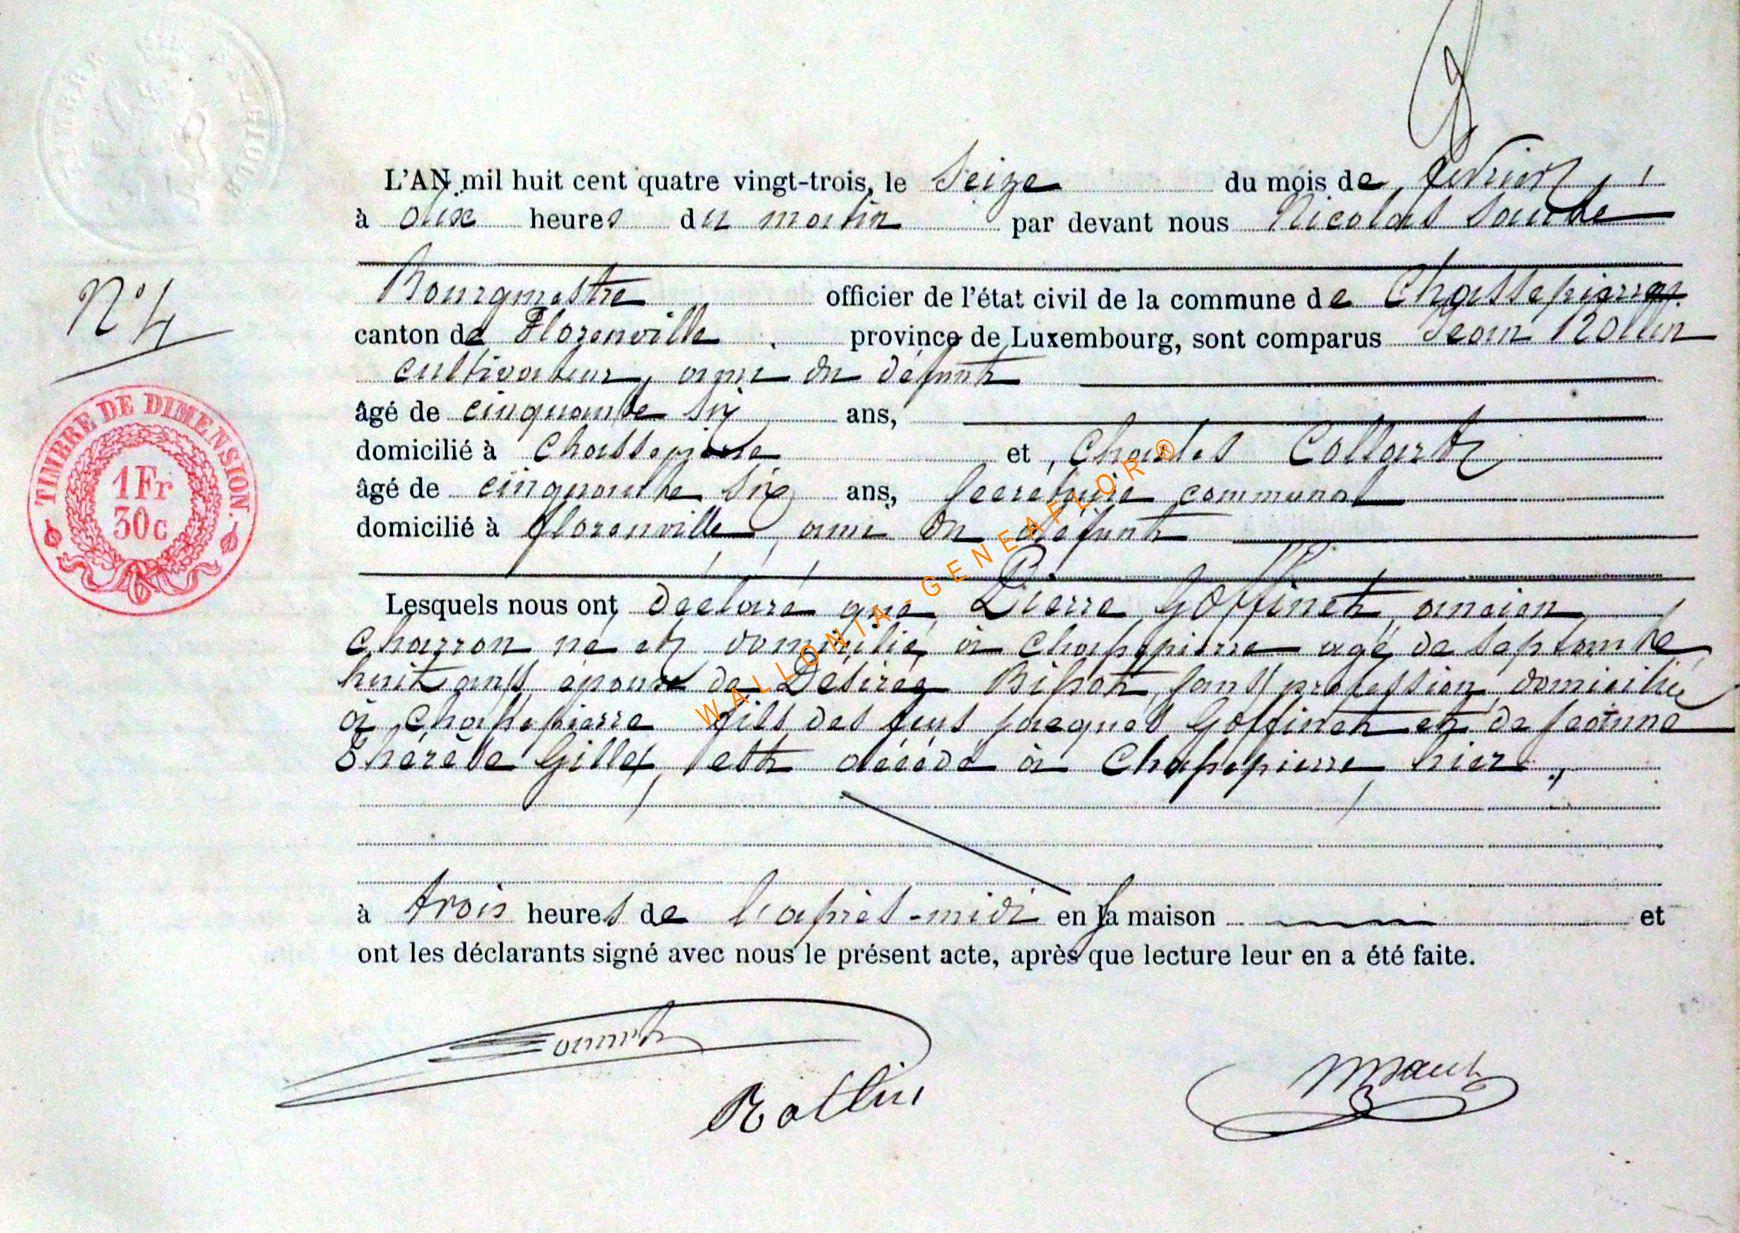 L'AN mil huit cent quatre vingt-trois, le Seize du mois de février,
à dix heures du matin par devant nous Nicolas
Bourgmestre officier de l'état civil de la commune de Chassepierre
N° 4
canton de Florenville province de Luxembourg, sont comparus Jean Rollin
cultivateur, ami du défunt
âgé de cinquante six ans,
TIMBRE DE DIMENSION
1Fr
30c
domicilié à Chassepierre et Charles Collart
âgé de cinquante six ans, secrétaire communal
domicilié à florenville, ami du défunt
WALLONIA-GENEAFLOR®
Lesquels nous ont déclaré que Pierre Goffinet, ancien
charron né et domicilié à Chassepierre agé de septante
huit ans, époux de Désirée sans profession domiciliée
à Chassepierre fils des feus jacques Goffinet et de jeanne
Thérèse Gillet, est décédé à Chassepierre, hier,
à trois heures de l'après-midi en sa maison et
ont les déclarants signé avec nous le présent acte, après que lecture leur en a été faite.
Rollin